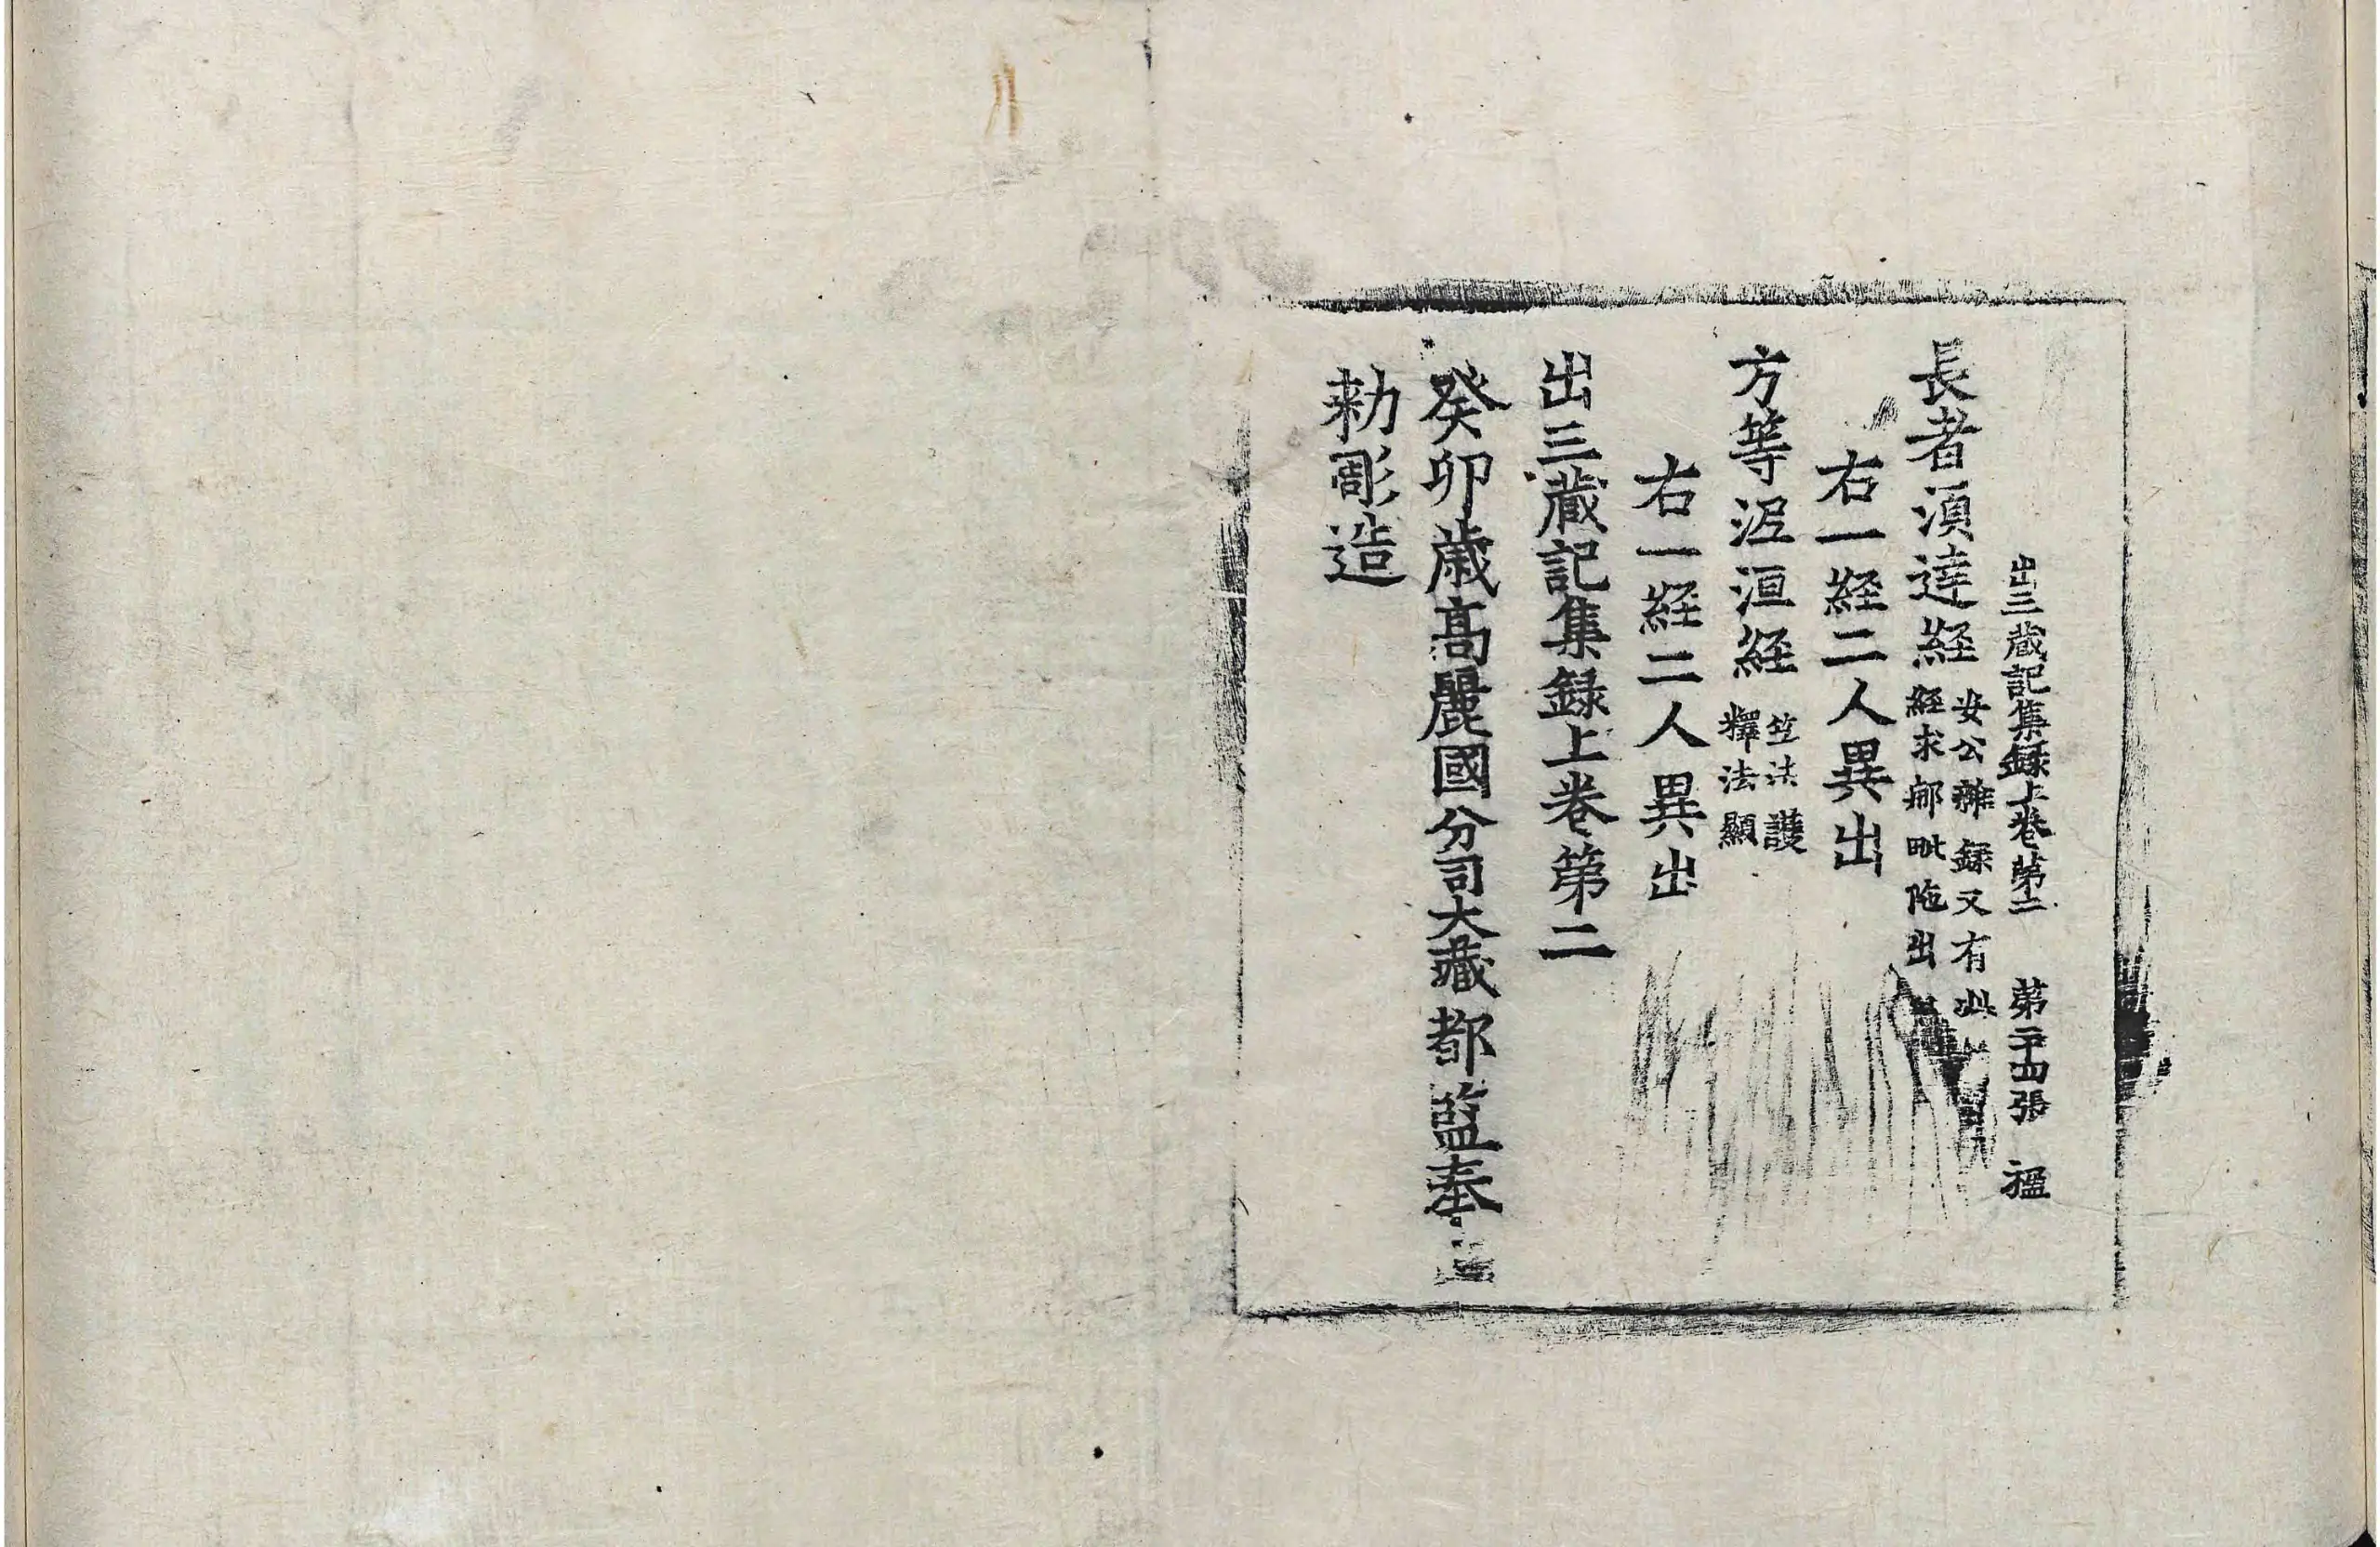 出三蔵記集録上卷第二 第二十四張 楹
長者湏達経
安公雜録又有此
経求郍毗陁出
右一経二人異出
方等泥洹経
竺法護
釋法顯
右一経二人異出
出三蔵記集録上卷第二
癸卯歳髙麗國分司大藏都監奉
勑彫造